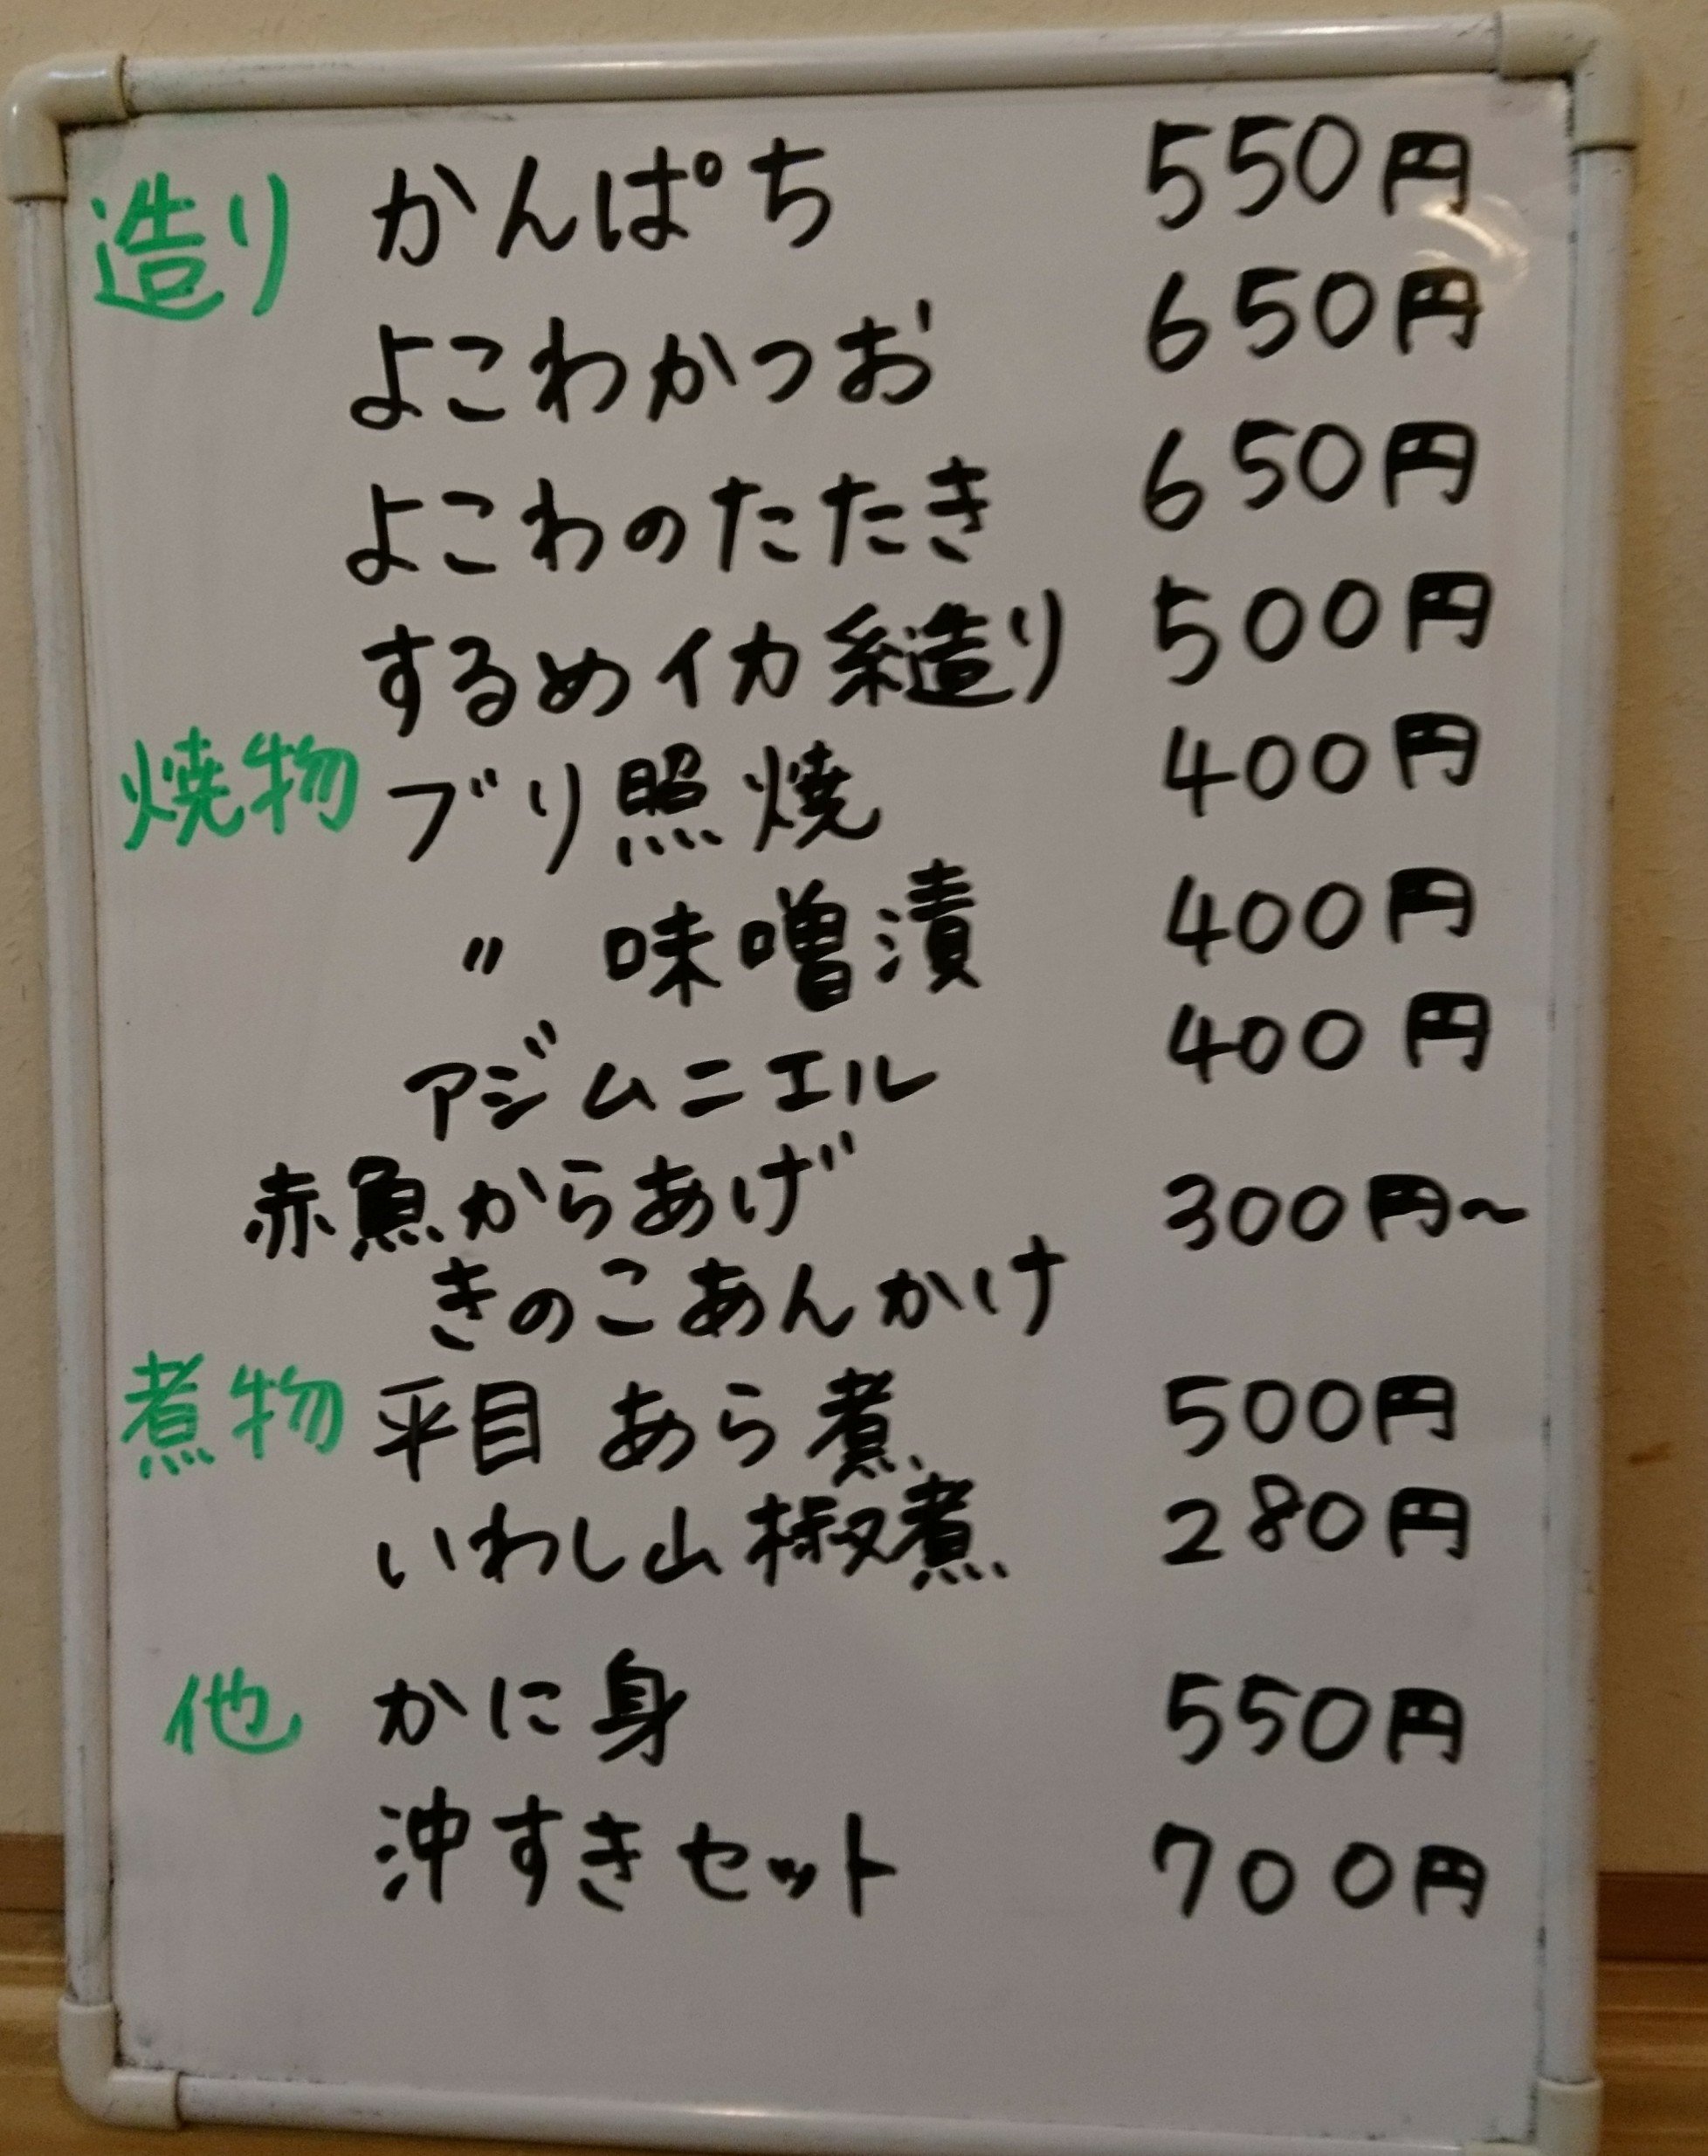 造り かんぱち 550円
よこわかつお 650円
よこわのたたき 650円
するめイカ糸造り 500円
焼物 ブリ照焼 400円
〃 味噌漬 400円
アジムニエル 400円
赤魚からあげ 300円~
きのこあんかけ
煮物 平目 あら煮 500円
いわし山椒煮 280円
他 かに身 550円
沖すきセット 700円